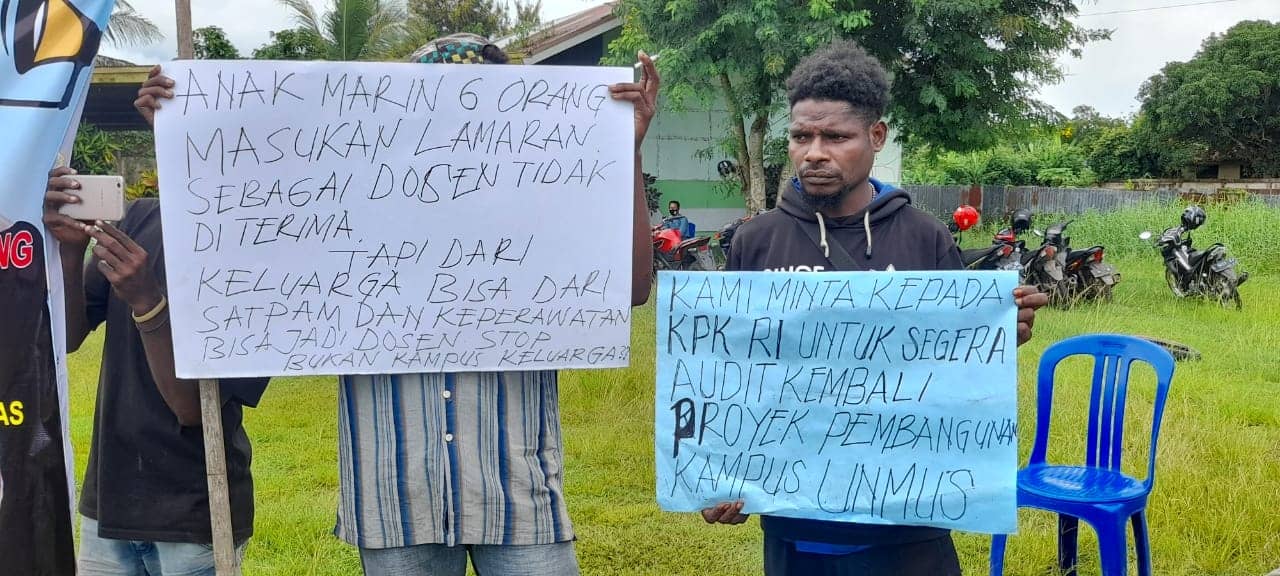 ANAK MARIN 6 ORANG
MASUKAN LAMARAN.
SEBAGAI DOSEN TIDAK
DITERIMA.
TAPI DARI
KELUARGA BISA DARI
SATPAM DAN KEPERAWATAN
BISA JADI DOSEN STOP
BUKAN KAMPUS KELUARGA
KAMI MINTA KEPADA
KPK RI UNTUK SEGERA
AUDIT KEMBALI
PROYEK PEMBANGUNAN
KAMPUS UNMUS
NG
AS